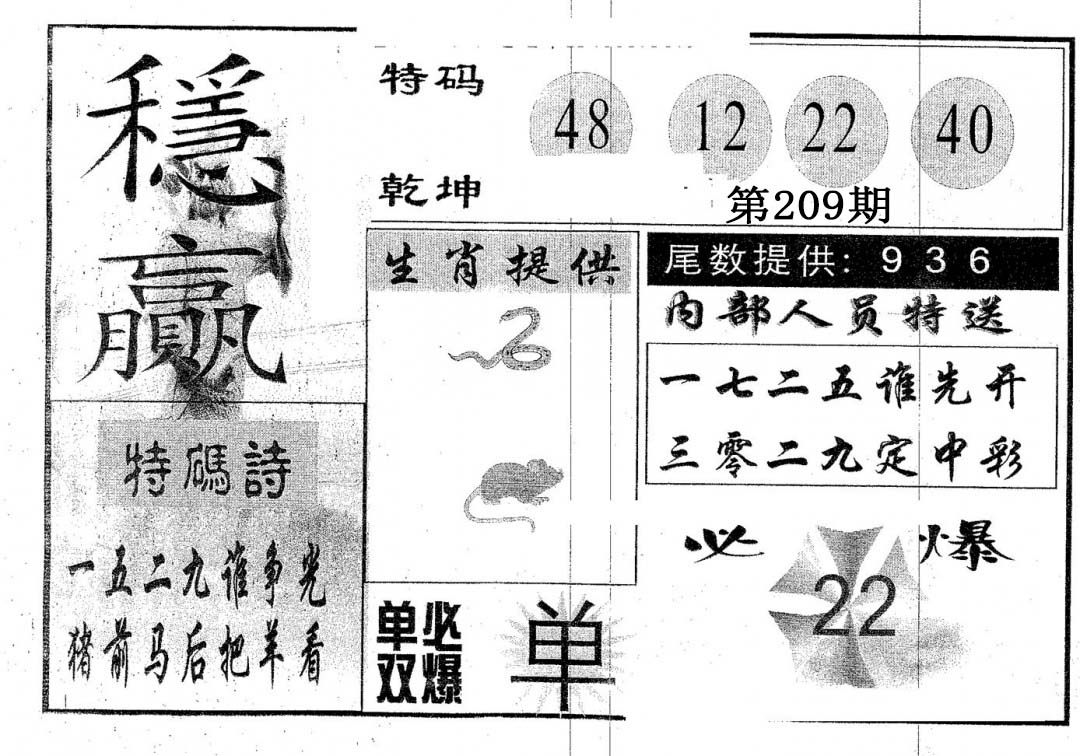 穩
贏
特码
48 12 22 40
乾坤
第209期
生肖提供
尾数提供: 9 3 6
内部人员特送
一七二五谁先开
三零二九定中彩
特碼詩
一五二九谁争光
猪前马后把羊看
必爆
22
单双
必爆
单